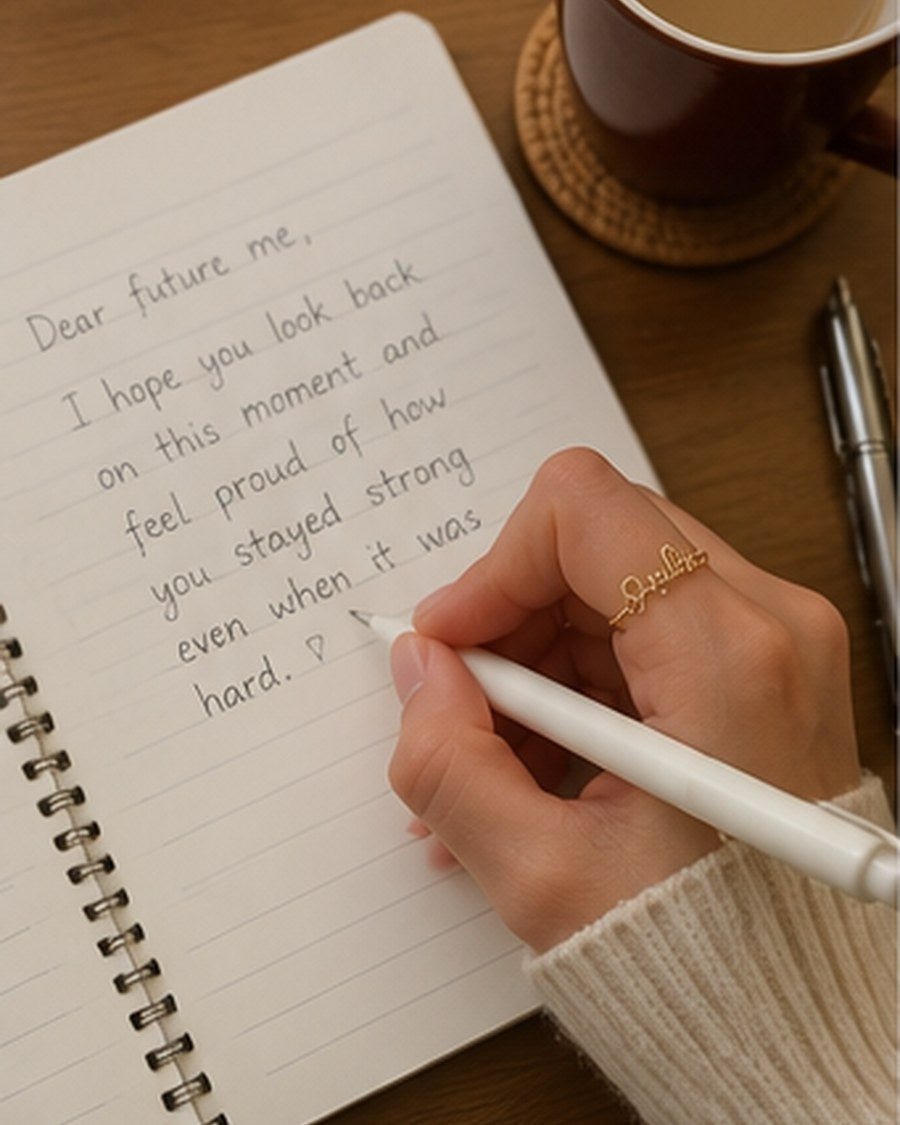 Dear future me,
I hope you look back
on this moment and
feel proud of how
you stayed strong
even when it was
hard.